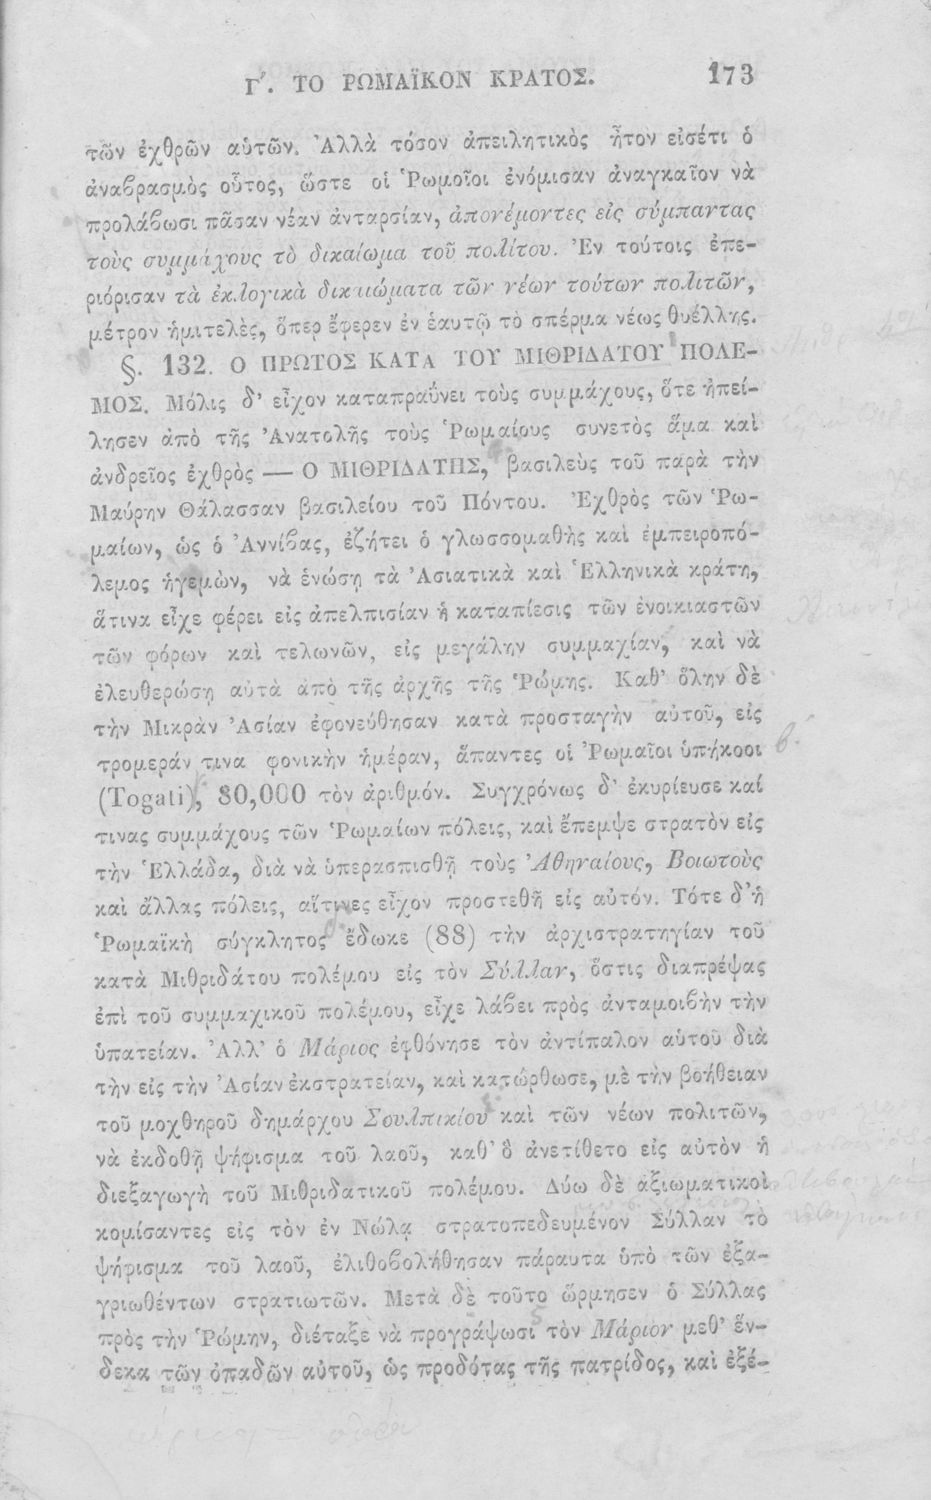 Γʹ. ΤΟ ΡΩΜΑΪΚΟΝ ΚΡΑΤΟΣ. 173
τῶν ἐχθρῶν αὑτῶν. Ἀλλὰ τόσον ἀπειλητικὸς ἦτον εἰσέτι ὁ
ἀναβρασμὸς οὗτος, ὥστε οἱ Ῥωμαῖοι ἐνόμισαν ἀναγκαῖον νὰ
προλάβωσι πᾶσαν νέαν ἀνταρσίαν, ἀπονέμοντες εἰς σύμπαντας
τοὺς συμμάχους τὸ δικαίωμα τοῦ πολίτου. Ἐν τούτοις ἐπε-
ριόρισαν τὰ ἐκλογικὰ δικαιώματα τῶν νέων τούτων πολιτῶν,
μέτρον ἡμιτελὲς, ὅπερ ἔφερεν ἐν ἑαυτῷ τὸ σπέρμα νέως θυέλλης.
§. 132. Ο ΠΡΩΤΟΣ ΚΑΤΑ ΤΟΥ ΜΙΘΡΙΔΑΤΟΥ ΠΟΛΕ-
ΜΟΣ. Μόλις δ' εἶχον καταπραΰνει τοὺς συμμάχους, ὅτε ἠπεί-
λησεν ἀπὸ τῆς Ἀνατολῆς τοὺς Ῥωμαίους συνετὸς ἅμα καὶ
ἀνδρεῖος ἐχθρὸς — Ο ΜΙΘΡΙΔΑΤΗΣ, βασιλεὺς τοῦ παρὰ τὴν
Μαύρην Θάλασσαν βασιλείου τοῦ Πόντου. Ἐχθρὸς τῶν Ῥω-
μαίων, ὡς ὁ Ἀννίβας, ἐζήτει ὁ γλωσσομαθὴς καὶ ἐμπειροπό-
λεμος ἡγεμὼν, νὰ ἑνώσῃ τὰ Ἀσιατικὰ καὶ Ἑλληνικὰ κράτη,
ἅτινα εἶχε φέρει εἰς ἀπελπισίαν ἡ καταπίεσις τῶν ἐνοικιαστῶν
τῶν φόρων καὶ τελωνῶν, εἰς μεγάλην συμμαχίαν, καὶ νὰ
ἐλευθερώσῃ αὐτὰ ἀπὸ τῆς ἀρχῆς τῆς Ῥώμης. Καθ' ὅλην δὲ
τὴν Μικρὰν Ἀσίαν ἐφονεύθησαν κατὰ προσταγὴν αὐτοῦ, εἰς
τρομεράν τινα φονικὴν ἡμέραν, ἅπαντες οἱ Ῥωμαῖοι ὑπήκοοι
(Togati), 80,000 τὸν ἀριθμόν. Συγχρόνως δ' ἐκυρίευσε καί
τινας συμμάχους τῶν Ῥωμαίων πόλεις, καὶ ἔπεμψε στρατὸν εἰς
τὴν Ἑλλάδα, διὰ νὰ ὑπερασπισθῇ τοὺς Ἀθηναίους, Βοιωτοὺς
καὶ ἄλλας πόλεις, αἵτινες εἶχον προστεθῆ εἰς αὐτόν. Τότε δ' ἡ
Ῥωμαϊκὴ σύγκλητος ἔδωκε (88) τὴν ἀρχιστρατηγίαν τοῦ
κατὰ Μιθριδάτου πολέμου εἰς τὸν Σύλλαν, ὅστις διαπρέψας
ἐπὶ τοῦ συμμαχικοῦ πολέμου, εἶχε λάβει πρὸς ἀνταμοιβὴν τὴν
ὑπατείαν. Ἀλλ' ὁ Μάριος ἐφθόνησε τὸν ἀντίπαλον αὑτοῦ διὰ
τὴν εἰς τὴν Ἀσίαν ἐκστρατείαν, καὶ κατώρθωσε, μὲ τὴν βοήθειαν
τοῦ μοχθηροῦ δημάρχου Σουλπικίου καὶ τῶν νέων πολιτῶν,
νὰ ἐκδοθῇ ψήφισμα τοῦ λαοῦ, καθ' ὃ ἀνετίθετο εἰς αὐτὸν ἡ
διεξαγωγὴ τοῦ Μιθριδατικοῦ πολέμου. Δύω δὲ ἀξιωματικοὶ
κομίσαντες εἰς τὸν ἐν Νώλᾳ στρατοπεδευμένον Σύλλαν τὸ
ψήφισμα τοῦ λαοῦ, ἐλιθοβολήθησαν πάραυτα ὑπὸ τῶν ἐξα-
γριωθέντων στρατιωτῶν. Μετὰ δὲ τοῦτο ὥρμησεν ὁ Σύλλας
πρὸς τὴν Ῥώμην, διέταξε νὰ προγράψωσι τὸν Μάριον μεθ' ἕν-
δεκα τῶν ὀπαδῶν αὐτοῦ, ὡς προδότας τῆς πατρίδος, καὶ ἐξέ-